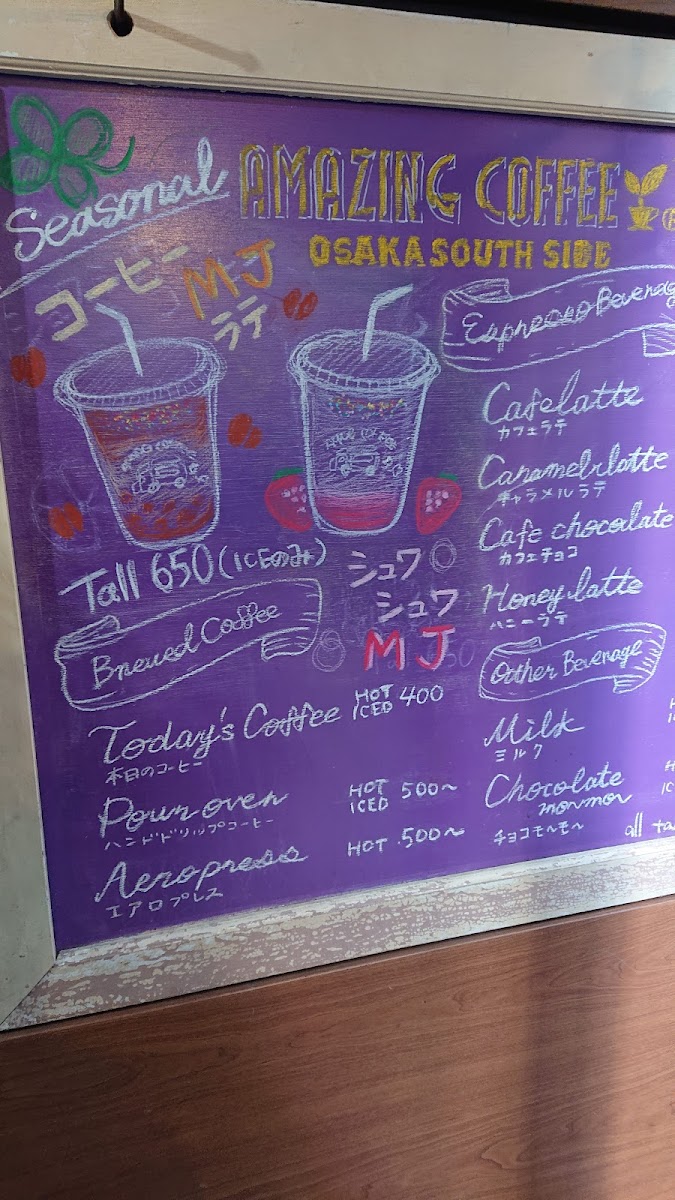 Seasonal
AMAZING COFFEE
OSAKA SOUTH SIDE
コーヒー MJ
ラテ
Tall 650 (ICEのみ)
シュワ
シュワ
MJ
Brewed Coffee
Today's Coffee HOT ICED 400
本日のコーヒー
Pour over HOT ICED 500~
ハンドドリップコーヒー
Aeropress HOT 500~
エアロプレス
Espresso Beverage
Cafe latte
カフェラテ
Caramel latte
キャラメルラテ
Cafe chocolate
カフェチョコ
Honey latte
ハニーラテ
Other Beverage
Milk
ミルク
Chocolate
mormor
チョコモ〜モ〜
all